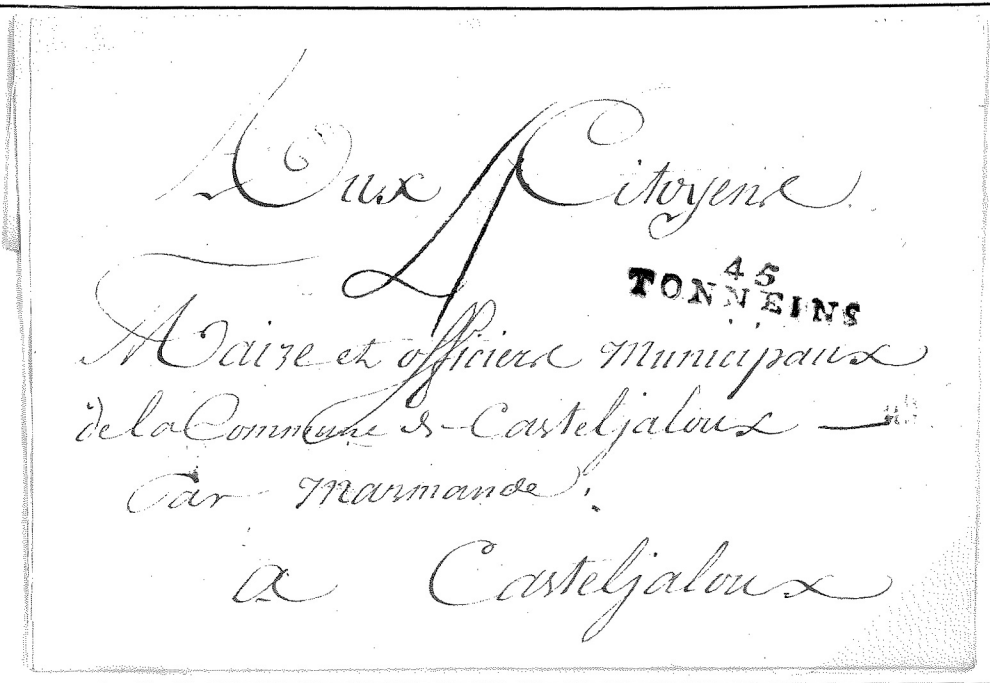 Aux Citoyens
4
45
TONNEINS
Maire et officiers Municipaux
de la Commune de Casteljaloux
Par Marmande.
a Casteljaloux